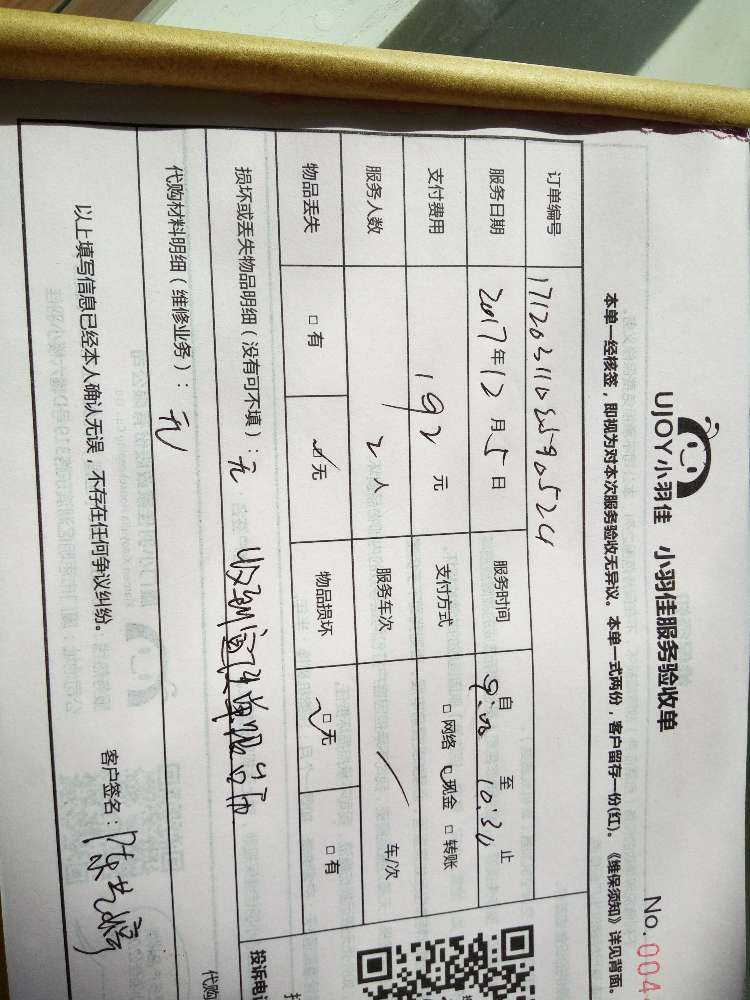 UJOY小羽佳 小羽佳服务验收单
No.004
本单一经核签，即视为对本次服务验收无异议。本单一式两份，客户留存一份(红)。《维保须知》详见背面。
订单编号
服务日期 2017年12月5日 服务时间 自9:00至10:30止
支付费用 192元 支付方式 □网络 ☑现金 □转账
服务人数 2人 服务车次 / 车/次
物品丢失 □有 ☑无 物品损坏 ☑无 □有
损坏或丢失物品明细（没有可不填）：无
代购材料明细（维修业务）：无
以上填写信息已经本人确认无误，不存在任何争议纠纷。
客户签名：
投诉电
代购